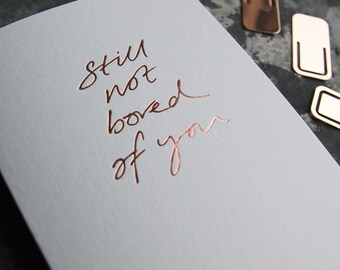 Still
not
bored
of you